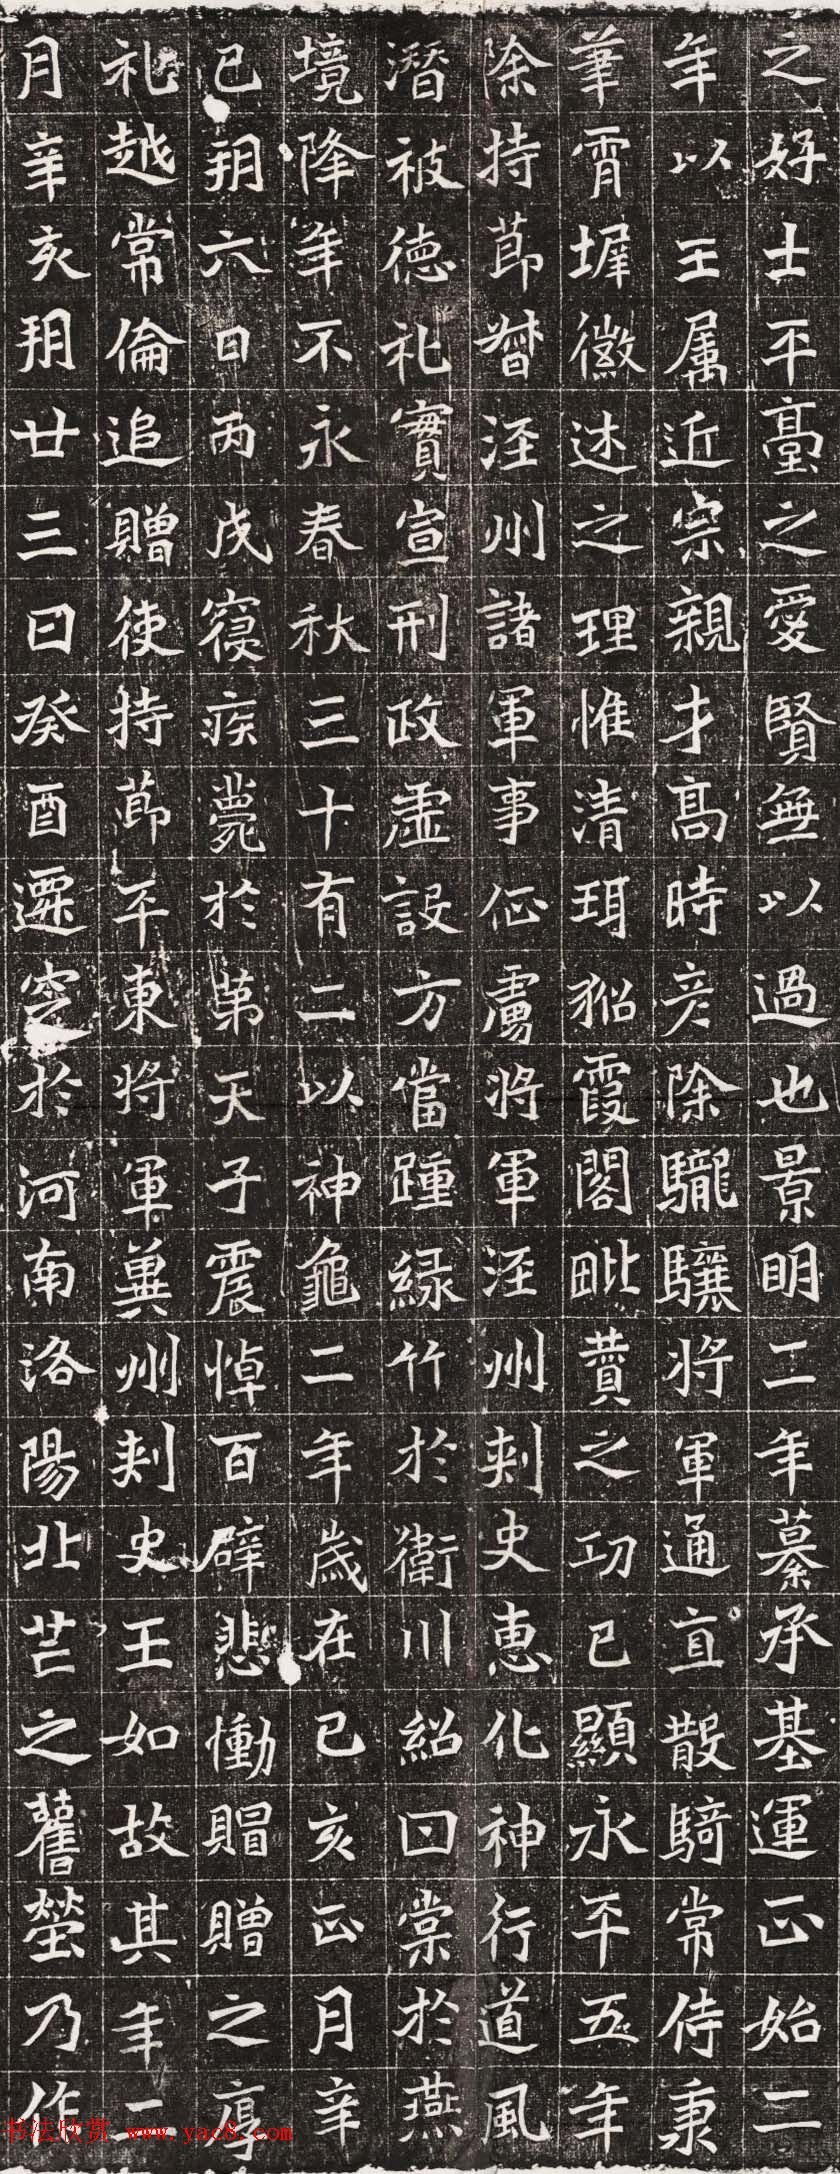 之好士平臺之愛賢無以過也景明二年纂承基運正始二
年以王属近宗親才高時彦除䮾驤將軍通直散騎常侍秉
筆霄墀徽述之理惟清珥貂霞閣毗賛之功已顯永平五年
除持莭督涇州諸軍事征虜將軍涇州刺史惠化神行道風
潛被德礼實宣刑政虛設方當踵緑竹於衛川紹甘棠於燕
境降年不永春秋三十有二以神龜二年歲在己亥正月辛
巳朔六日丙戌寑疾薨於第天子震悼百辟悲慟賵贈之厚
礼越常倫追贈使持莭平東將軍冀州刺史王如故其年二
月辛亥朔廿三日癸酉遷窆於河南洛陽北芒之舊塋乃作
书法欣赏 www.yac8.com